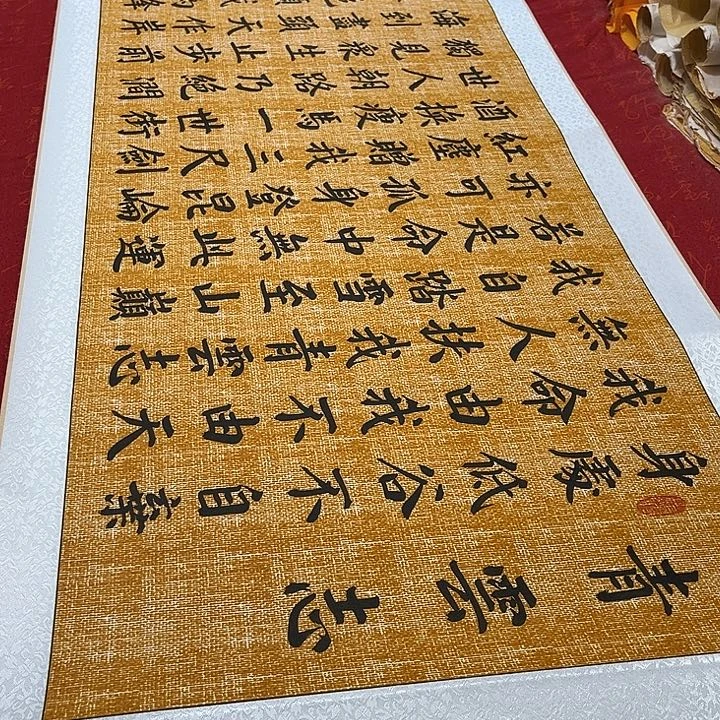 青雲志
身處低谷不自棄
我命由我不由天
無人扶我青雲志
我自踏雪至山巔
若是命中無此運
亦可孤身登昆崙
紅塵贈我三尺劍
酒換瘦馬一世術
世人朝路乃絕間
獨見衆生止步前
海到盡頭天作岸
我 峰